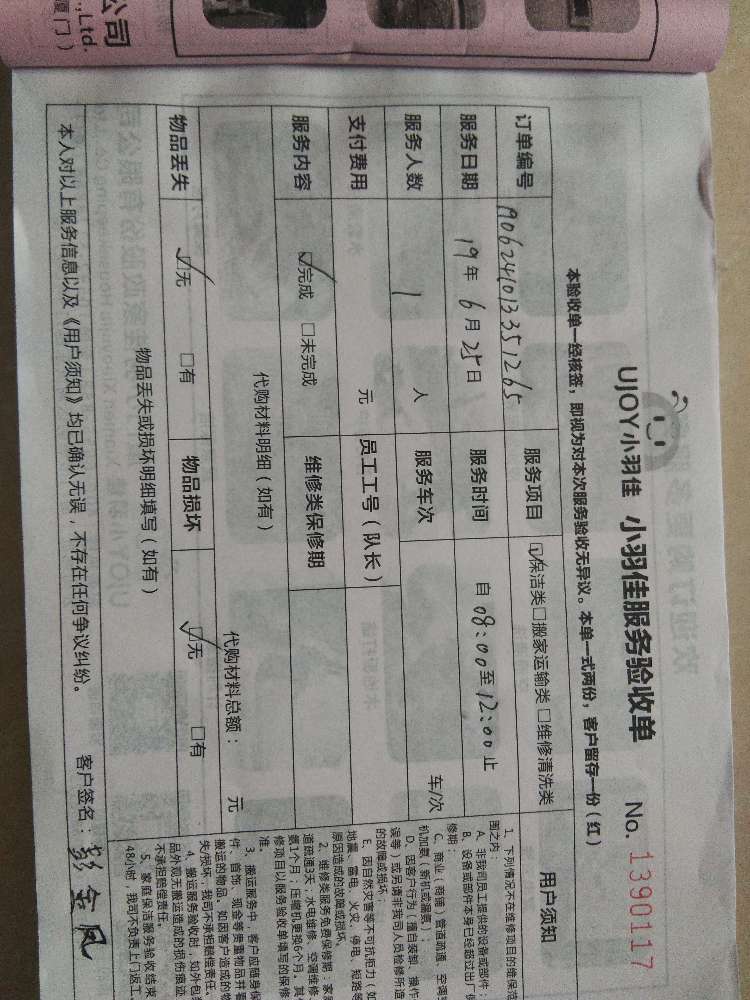 公司
.,Ltd.
厦门）
UJOY小羽佳 小羽佳服务验收单 No. 1390117
本验收单一经核签，即视为对本次服务验收无异议。本单一式两份，客户留存一份（红）
订单编号 190624101335 1265 服务项目 ☑保洁类□搬家运输类□维修清洗类
服务日期 19年 6月 25日 服务时间 自 08:00至12:00止
服务人数 1 人 服务车次 车/次
支付费用 元 员工工号（队长）
服务内容 ☑完成 □未完成 维修类保修期
代购材料明细（如有） 代购材料总额： 元
物品丢失 ☑无 □有 物品损坏 ☑无 □有
物品丢失或损坏明细填写（如有）
本人对以上服务信息以及《用户须知》均已确认无误，不存在任何争议纠纷。 客户签名：彭金凤
用户须知
1、下列情况不在维修项目的维保范
围之内：
A、非我司员工提供的设备或部件；
B、设备或部件本身已经超过出厂保
修期；
C、商业（商铺）管道疏通，空调
机加氨（新机或漏氨）；
D、因客户行为（擅自装制、操作
误等）或央请非我司人员检修所造
的故障或损坏；
E、因自然灾害等不可抗拒力（如
地震、雷电、火灾、停电、短路等
原因造成的故障或损坏。
2、维修类服务免费保修期：家
道疏通3天；水电维修、空调维修
氨1个月；压缩机更换6个月。其
修项目以服务验收单填写的保修
准。
3、搬运服务中，客户应随身保
件、首饰、现金等贵重物品并
搬运的物品。如因客户造成的物
失/损坏，我司不承担赔偿责任。
4、搬运服务验收时，如外包装
品外观无搬运造成的损伤痕迹
不承担赔偿责任。
5、家庭保洁服务验收结束
48小时，我司不负责上门返工